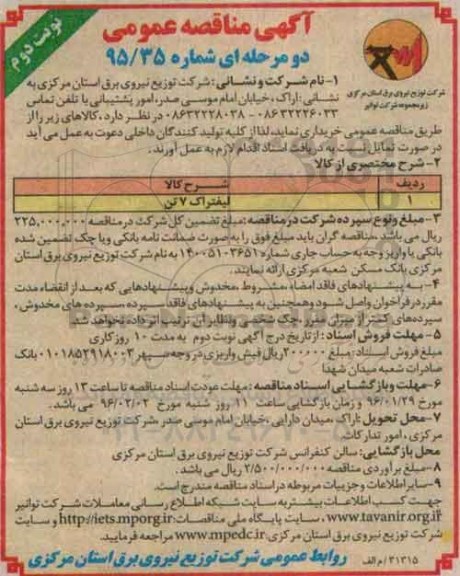 نوبت دوم
آگهی مناقصه عمومی
دو مرحله ای شماره ۹۵/۳۵
شرکت توزیع نیروی برق استان مرکزی
زیر مجموعه شرکت توانیر
۱- نام شرکت و نشانی : شرکت توزیع نیروی برق استان مرکزی به
نشانی : اراک ، خیابان امام موسی صدر، امور پشتیبانی با تلفن تماس
۰۸۶۳۲۲۲۶۰۳۳ - ۰۸۶۳۲۲۲۸۰۳۸ در نظر دارد ، کالاهای زیر را از
طریق مناقصه عمومی خریداری نماید، لذا از کلیه تولید کنندگان داخلی دعوت به عمل می آید
در صورت تمایل نسبت به دریافت اسناد اقدام لازم به عمل آورند .
۲- شرح مختصری از کالا
ردیف شرح کالا
۱ لیفتراک ۷ تن
۳- مبلغ و نوع سپرده شرکت در مناقصه : مبلغ تضمین کل شرکت در مناقصه ۲۲۵,۰۰۰,۰۰۰
ریال می باشد .مناقصه گران باید مبلغ فوق را به صورت ضمانت نامه بانکی ویا چک تضمین شده
بانکی یا واریز وجه به حساب جاری شماره ۱۴۰۰۵۱۰۳۶۵۱ به نام شرکت توزیع نیروی برق استان
مرکزی بانک مسکن شعبه مرکزی ارائه نمایند .
۴- به پیشنهادهای فاقد امضاء ،مشروط ،مخدوش وپیشنهادهایی که بعد از انقضاء مدت
مقرر در فراخوان واصل شود وهمچنین به پیشنهادهای فاقد سپرده ،سپرده های مخدوش ،
سپرده های کمتر از میزان مقرر، چک شخصی ونظایر آن ترتیب اثر داده نخواهد شد.
۵- مهلت فروش اسناد : از تاریخ درج آگهی نوبت دوم به مدت ۱۰ روز کاری
مبلغ فروش اسناد : مبلغ ۲۰۰۰۰۰ ریال فیش واریزی در وجه سپهر ۰۱۰۱۸۵۲۹۱۸۰۰۳ بانک
صادرات شعبه میدان شهدا
۶- مهلت وبازگشایی اسناد مناقصه : مهلت عودت اسناد مناقصه تا ساعت ۱۳ روز سه شنبه
مورخ ۹۶/۰۱/۲۹ و زمان بازگشایی ساعت ۱۱ روز شنبه مورخ ۹۶/۰۲/۰۲ می باشد .
۷- محل تحویل :اراک ،میدان دارایی ،خیابان امام موسی صدر ،شرکت توزیع نیروی برق استان
مرکزی ، امور تدارکات
محل بازگشایی: سالن کنفرانس شرکت توزیع نیروی برق استان مرکزی
۸- مبلغ برآوردی مناقصه ۲/۵۰۰/۰۰۰/۰۰۰ ریال می باشد .
۹- سایر اطلاعات و جزییات مربوطه در اسناد مناقصه مندرج است.
جهت کسب اطلاعات بیشتر به سایت شبکه اطلاع رسانی معاملات شرکت توانیر
www.tavanir.org.ir ، سایت پایگاه ملی مناقصات http://iets.mporg.ir و سایت
شرکت توزیع نیروی برق استان مرکزی www.mpedc.ir مراجعه فرمایید.
روابط عمومی شرکت توزیع نیروی برق استان مرکزی
۳۱۳۱۵ / م الف